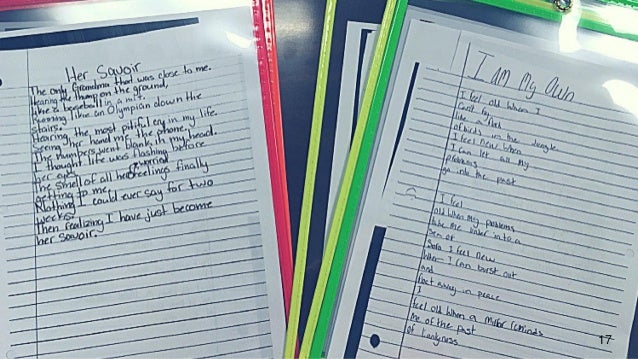 Her Savoir
The only Grandma that was close to me.
Hearing the thump on the ground,
like a baseball in a mit.
Running like an Olympian down the
stairs.
Hearing the most pitiful cry in my life.
Seeing her hand me the phone.
The numbers went blank in my head.
I thought life was flashing before
her eyes.
The smell of all her feelings finally
getting to me.
Nothing I could ever say for two
weeks.
Then realizing I have just become
her savoir.
I AM My Own
I feel old when I
can't fly
like a flock
of birds in the jungle
I feel new when
I can let all my
problems
go into the past
I feel
old when my problems
take me under into a
Sea of
I feel new
when I can burst out
and
float away in peace
I
feel old when a mirror reminds
me of the past
of
17